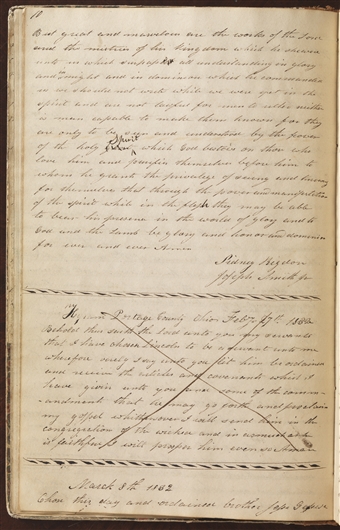 10
But great and marvelous are the works of the Lord
and the mysteries of his kingdom which he shewed
unto us which surpasseth all understanding in glory
and in might and in dominion which he commanded
us we should not write while we were yet in the
spirit and are not lawful for man to utter neither
is man capable to make them known for they
are only to be seen and understood by the power
of the holy spirit which God bestows on those who
love him and purifie themselves before him to
whom he grants the privelege of seeing and knowing
for themselves that through the power and manifestation
of the spirit while in the flesh they may be able
to bear his presence in the world of glory and to
God and the Lamb be glory and honor and dominion
for ever and ever Amen
Sidney Rigdon
Joseph Smith Jr
Hyrum Portage County Ohio Feb. 17th 1832
Behold thus saith the lord unto you my servants
that I have chosen Lincoln to be a servant unto me
wherefore verily I say unto you let him be ordained
and receive the articles and covenants which I
have given unto you and some of the comm-
-andments that he may go forth and proclaim
my gospel whithersoever I will send him in the
congregations of the wicked and in as much as he
is faithful I will prosper him even so Amen
March 8th 1832
Chose this day and ordained brother Jesse